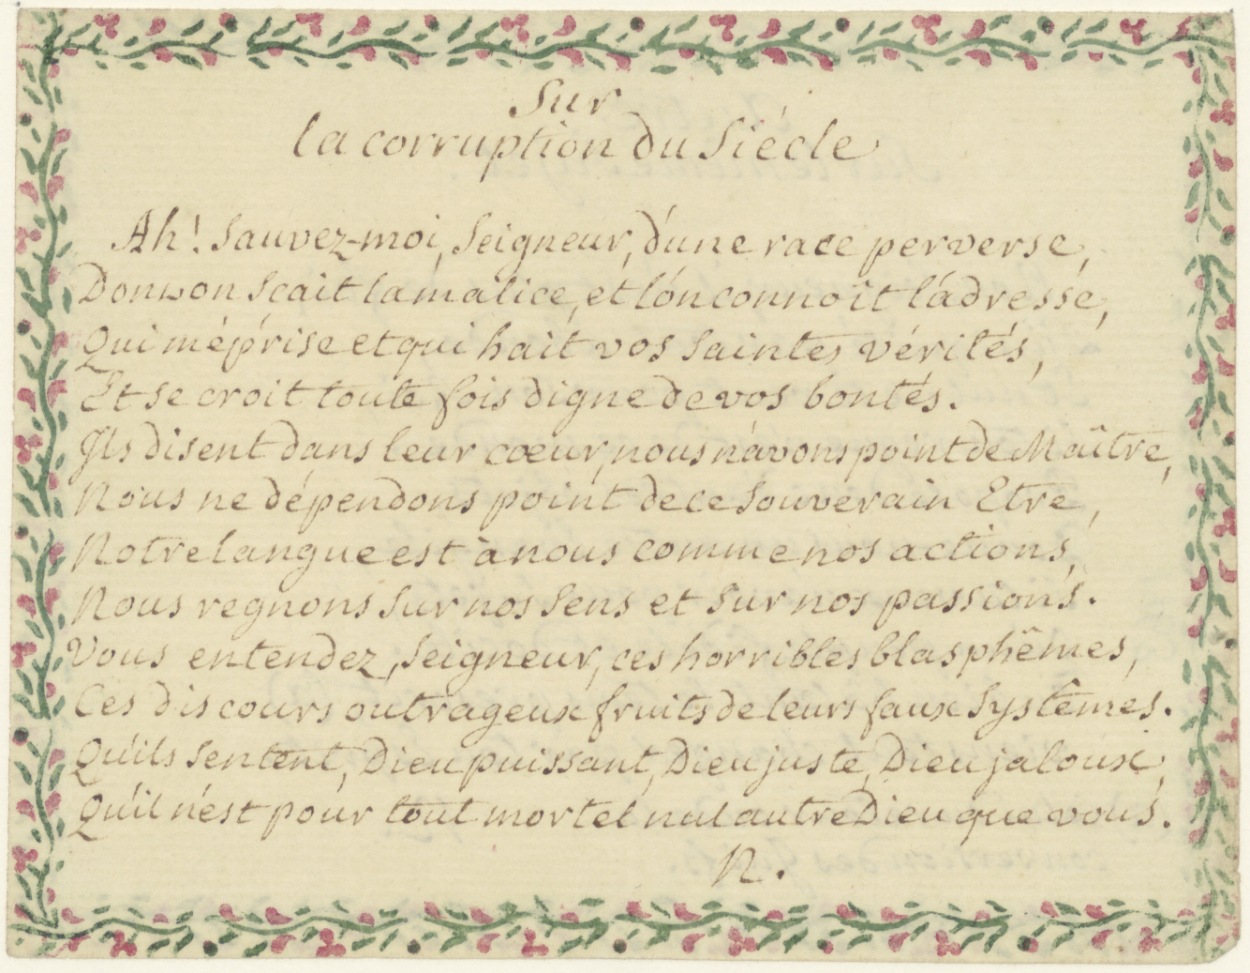 Sur
la corruption du Siécle
Ah! Sauvez-moi, Seigneur, d'une race perverse,
Dont on Scait la malice, et l'on connoît l'adresse,
Qui méprise et qui hait vos Saintes vérités,
Et se croit toute fois digne de vos bontés.
Ils disent dans leur cœur, nous n'avons point de Maître,
Nous ne dépendons point de ce Souverain Etre,
Notre langue est à nous comme nos actions,
Nous regnons Sur nos Sens et Sur nos passions.
Vous entendez, Seigneur, ces horribles blasphêmes,
Ces discours outrageux fruits de leurs faux Systêmes.
Qu'ils Sentent, Dieu puissant, Dieu juste, Dieu jaloux,
Qu'il n'est pour tout mortel nul autre Dieu que vous.
R.